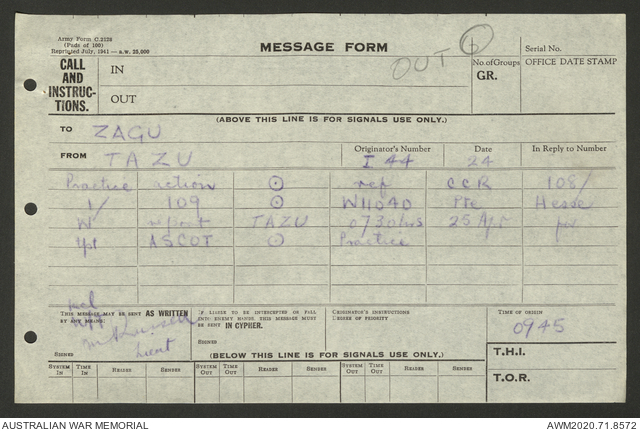 Army Form C.2128
(Pads of 100)
Reprinted July, 1941—a.w. 25,000
MESSAGE FORM
OUT 6
Serial No.
CALL AND INSTRUCTIONS.
IN
OUT
No. of Groups
GR.
OFFICE DATE STAMP
(ABOVE THIS LINE IS FOR SIGNALS USE ONLY.)
TO ZAGU
FROM TAZU
Originator's Number
I 44
Date
24
In Reply to Number
Practice action ⊙ ref CCR 108/
1/ 109 ⊙ W11040 Pte Hesse
W report TAZU 0730 hrs 25 Apr
ASCOT ⊙ Practice
THIS MESSAGE MAY BE SENT AS WRITTEN
BY ANY MEANS
SIGNED
Lieut
IF LIABLE TO BE INTERCEPTED OR FALL
INTO ENEMY HANDS THIS MESSAGE MUST
BE SENT IN CIPHER.
SIGNED
ORIGINATOR'S INSTRUCTIONS
DEGREE OF PRIORITY
TIME OF ORIGIN
0945
T.H.I.
T.O.R.
(BELOW THIS LINE IS FOR SIGNALS USE ONLY.)
SYSTEM IN TIME IN READER SENDER SYSTEM OUT TIME OUT READER SENDER SYSTEM OUT TIME OUT READER SENDER
AUSTRALIAN WAR MEMORIAL
AWM2020.71.8572